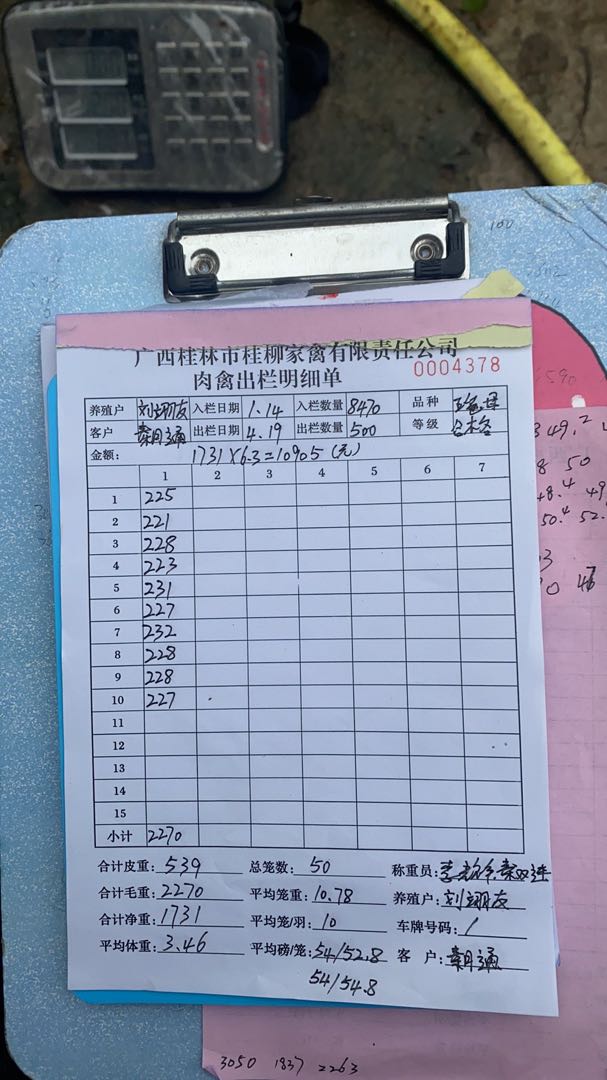 广西桂林市桂柳家禽有限责任公司
肉禽出栏明细单 0004378
养殖户 刘翊友 入栏日期 1.14 入栏数量 8470 品种
客户 出栏日期 4.19 出栏数量 500 等级 合格
金额: 1731×6.3=10905(元)
1 2 3 4 5 6 7
1 225
2 221
3 228
4 223
5 231
6 227
7 232
8 228
9 228
10 227
11
12
13
14
15
小计 2270
合计皮重: 539 总笼数: 50 称重员:
合计毛重: 2270 平均笼重: 10.78 养殖户: 刘翊友
合计净重: 1731 平均笼/羽: 10 车牌号码: /
平均体重: 3.46 平均磅/笼: 54/52.8 客 户:
54/54.8
100
6590
349.2
8 50
48.4 49
50.4 52.
3050 1837 2263